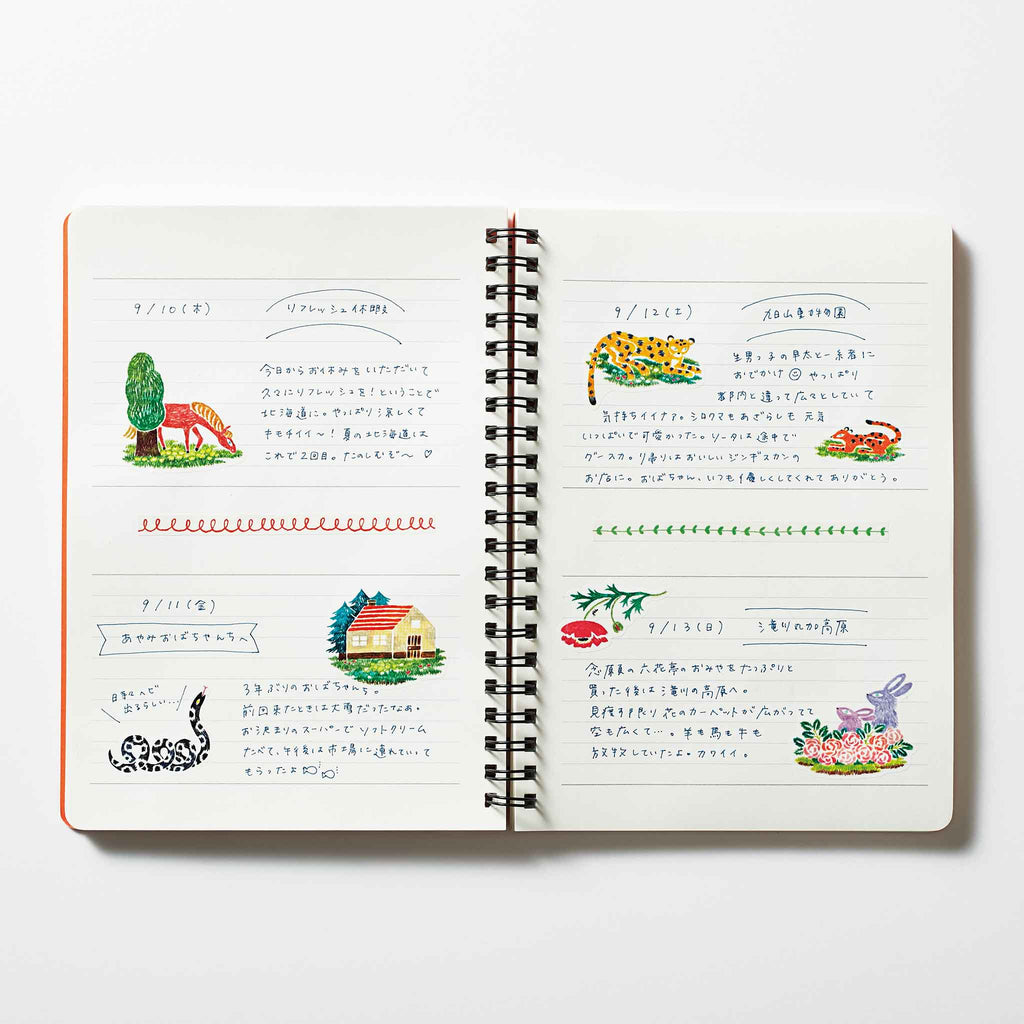 9/10(木)
リフレッシュ休暇
今日からお休みをいただいて
久々にリフレッシュを!ということで
北海道に。やっぱり涼しくて
キモチイイ〜!夏の北海道は
これで2回目。たのしむぞ〜♡
9/11(金)
あやみおばちゃんちへ
日本ヘビ
出るらしい…
3年ぶりのおばちゃんち。
前回来たときは大雪だったなあ。
お決まりのスーパーでソフトクリーム
たべて、午後は市場に連れていって
もらったよ
9/12(土)
旭山動物園
生男っ子の早太と一糸者に
おでかけ☺やっぱり
都内と違って広々としていて
気持ちイイナァ。シロクマもあざらしも元気
いっぱいで可愛かった。リータは途中で
グースカ。帰りはおいしいジンギスカンの
お店に。おばちゃん、いつも優しくしてくれてありがとう。
9/13(日)
滝川丸加高原
六花亭のおみやをたっぷりと
買った後は滝川の高原へ。
見渡す限り花のカーペットが広がってて
空も広くて…。羊も馬も牛も
放牧していたよ。カワイイ。